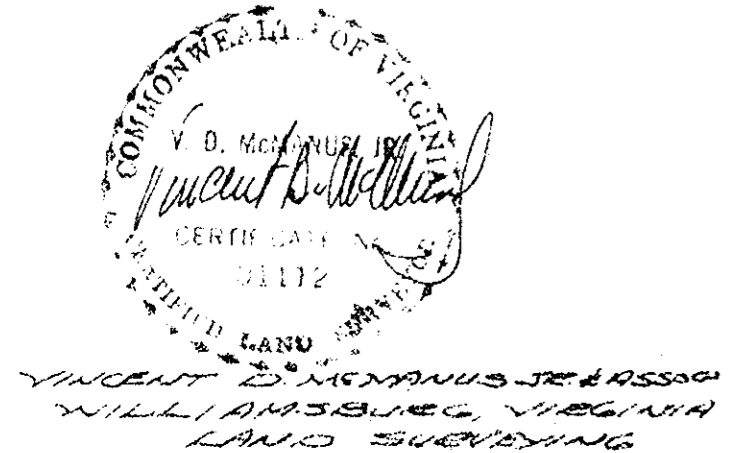 COMMONWEALTH OF VIRGINIA
V. D. McMANUS, JR.
Vincent D. McManus
CERTIFICATE No.
01112
CERTIFIED LAND SURVEYOR
VINCENT D. McMANUS JR. & ASSOC
WILLIAMSBURG, VIRGINIA
LAND SURVEYING